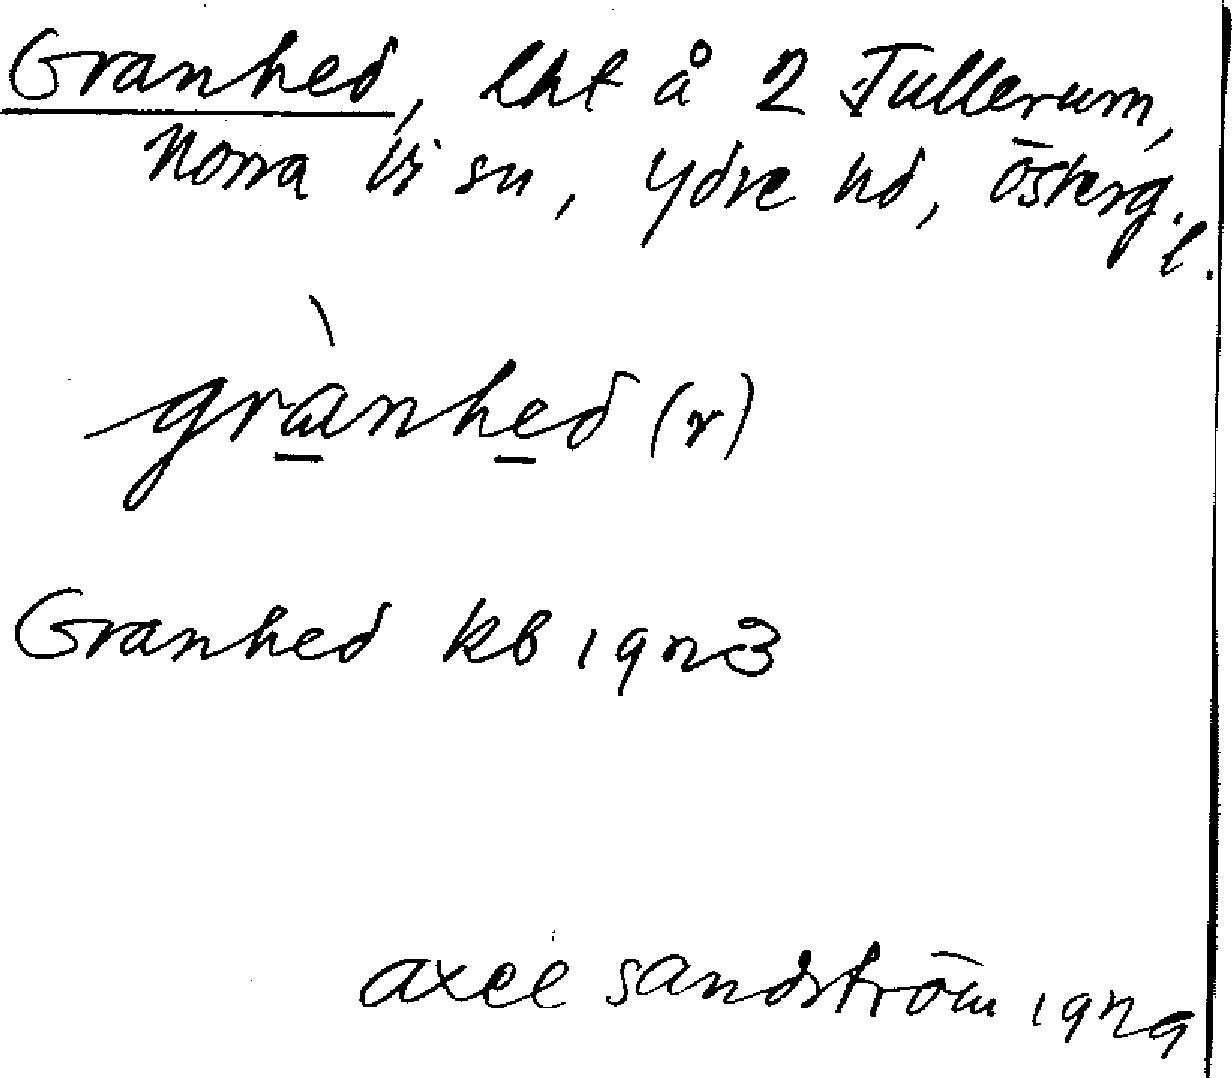 Granhed, lht å 2 Tullerum,
Norra Vi sn, Ydre hd, Österg.
l.
grànhed (r)
Granhed kb 1923
Axel Sandström 1929